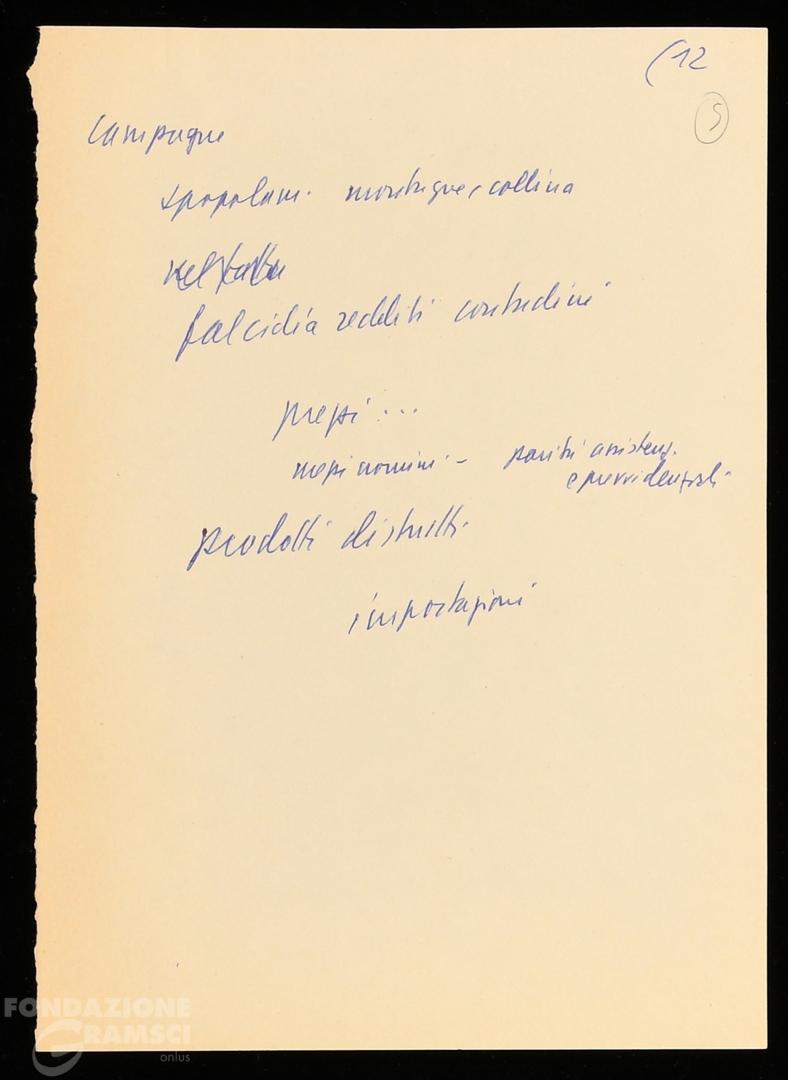 (12
5
Campagne
spopolam. montagne e collina
falcidia redditi contadini
prezzi ...
mezzi uomini - parità assistenz.
e previdenziali
prodotti distrutti
importazioni
FONDAZIONE
GRAMSCI
onlus